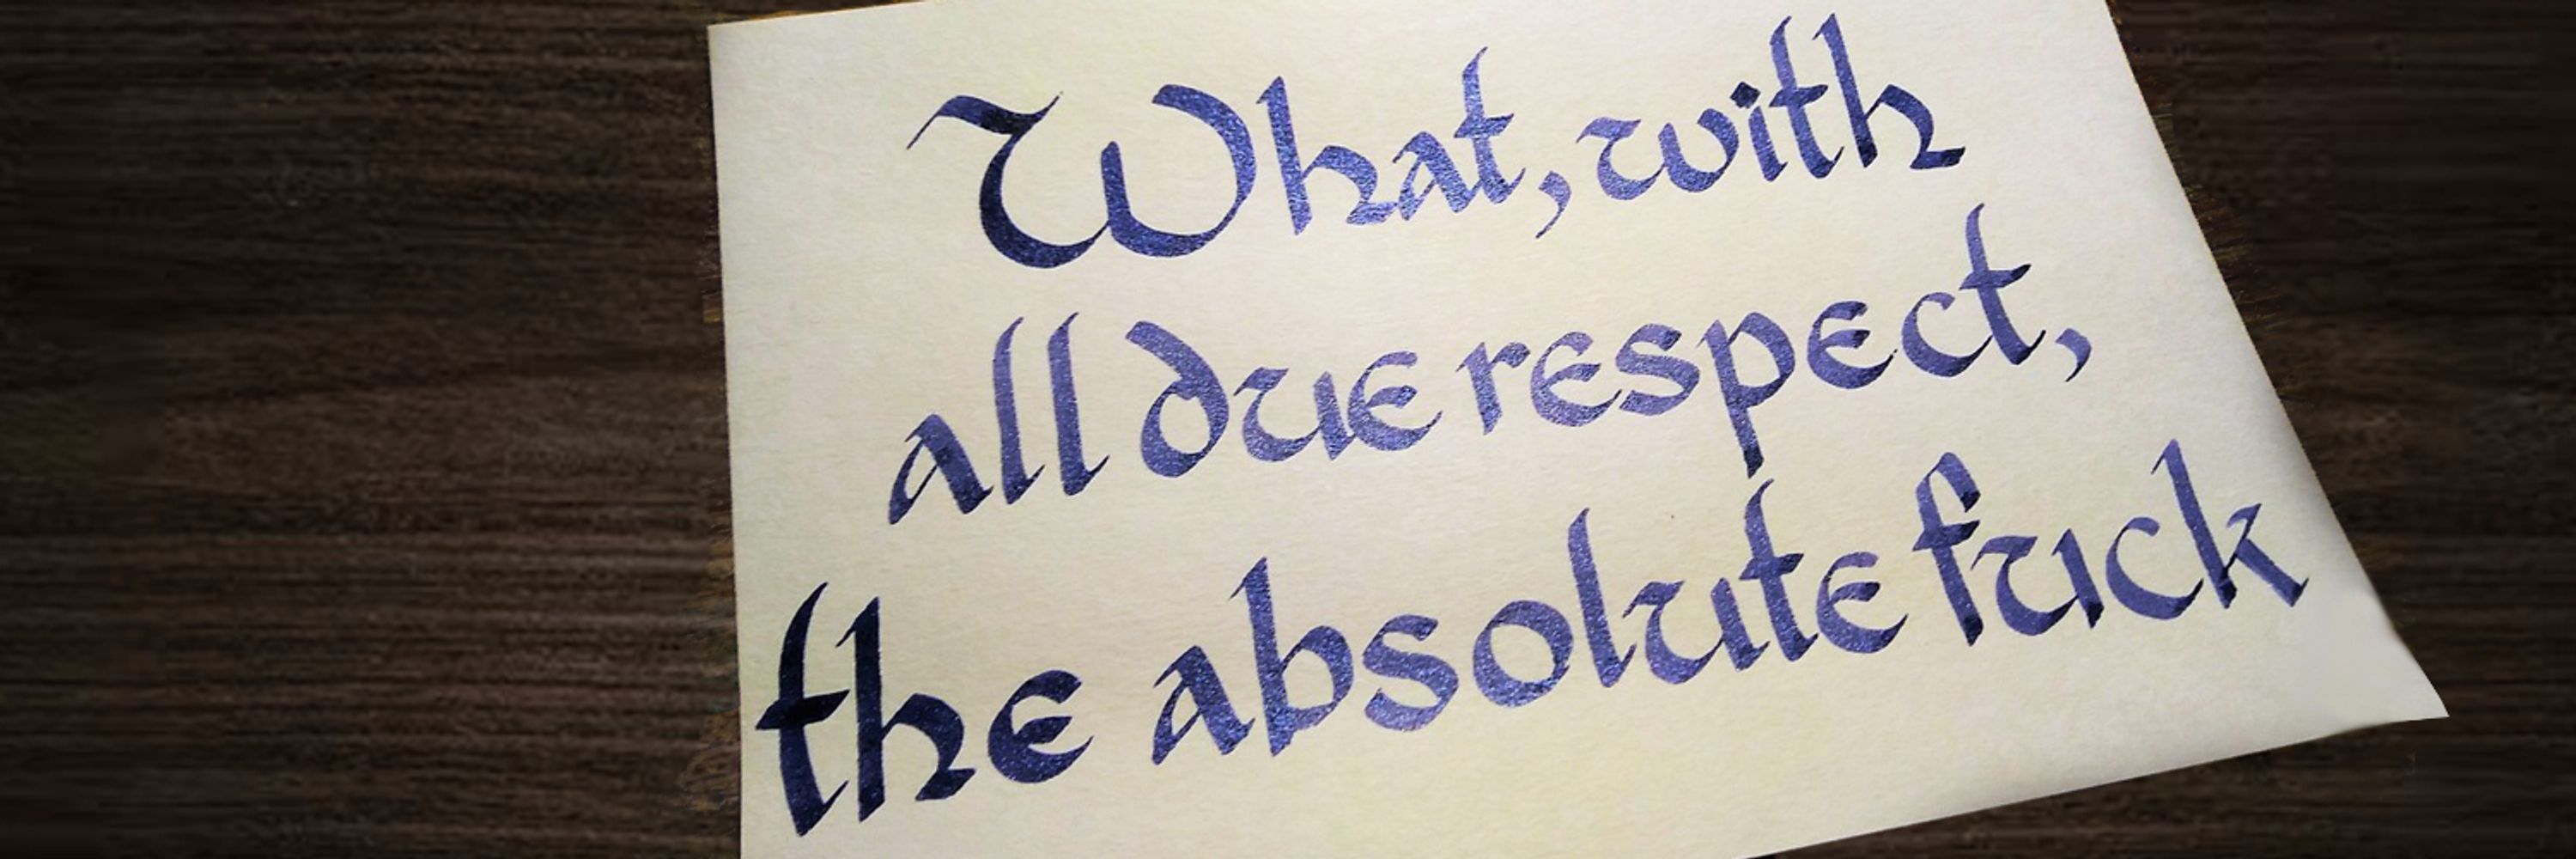 What, with
all due respect,
the absolute fuck